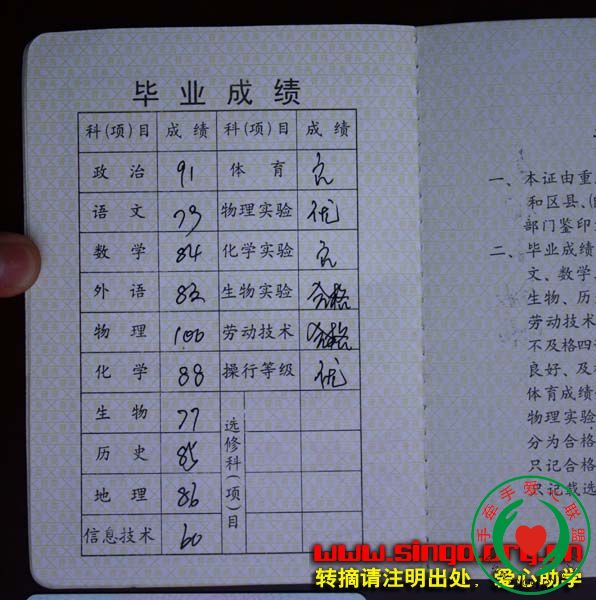 毕业成绩
科(项)目 成绩 科(项)目 成绩
政治 91 体育 良
语文 79 物理实验 优
数学 84 化学实验 良
外语 83 生物实验 合格
物理 100 劳动技术 合格
化学 88 操行等级 优
生物 77
历史 85
地理 86
信息技术 60
选修科(项)目
一、本证由重
和区县、(
部门鉴印
二、毕业成绩
文、数学、
生物、历
劳动技术
不及格四
良好、及
体育成绩
物理实验
分为合格
只记合格
只记载选
手牵手爱心联盟
www.singo.org.cn
转摘请注明出处，爱心助学